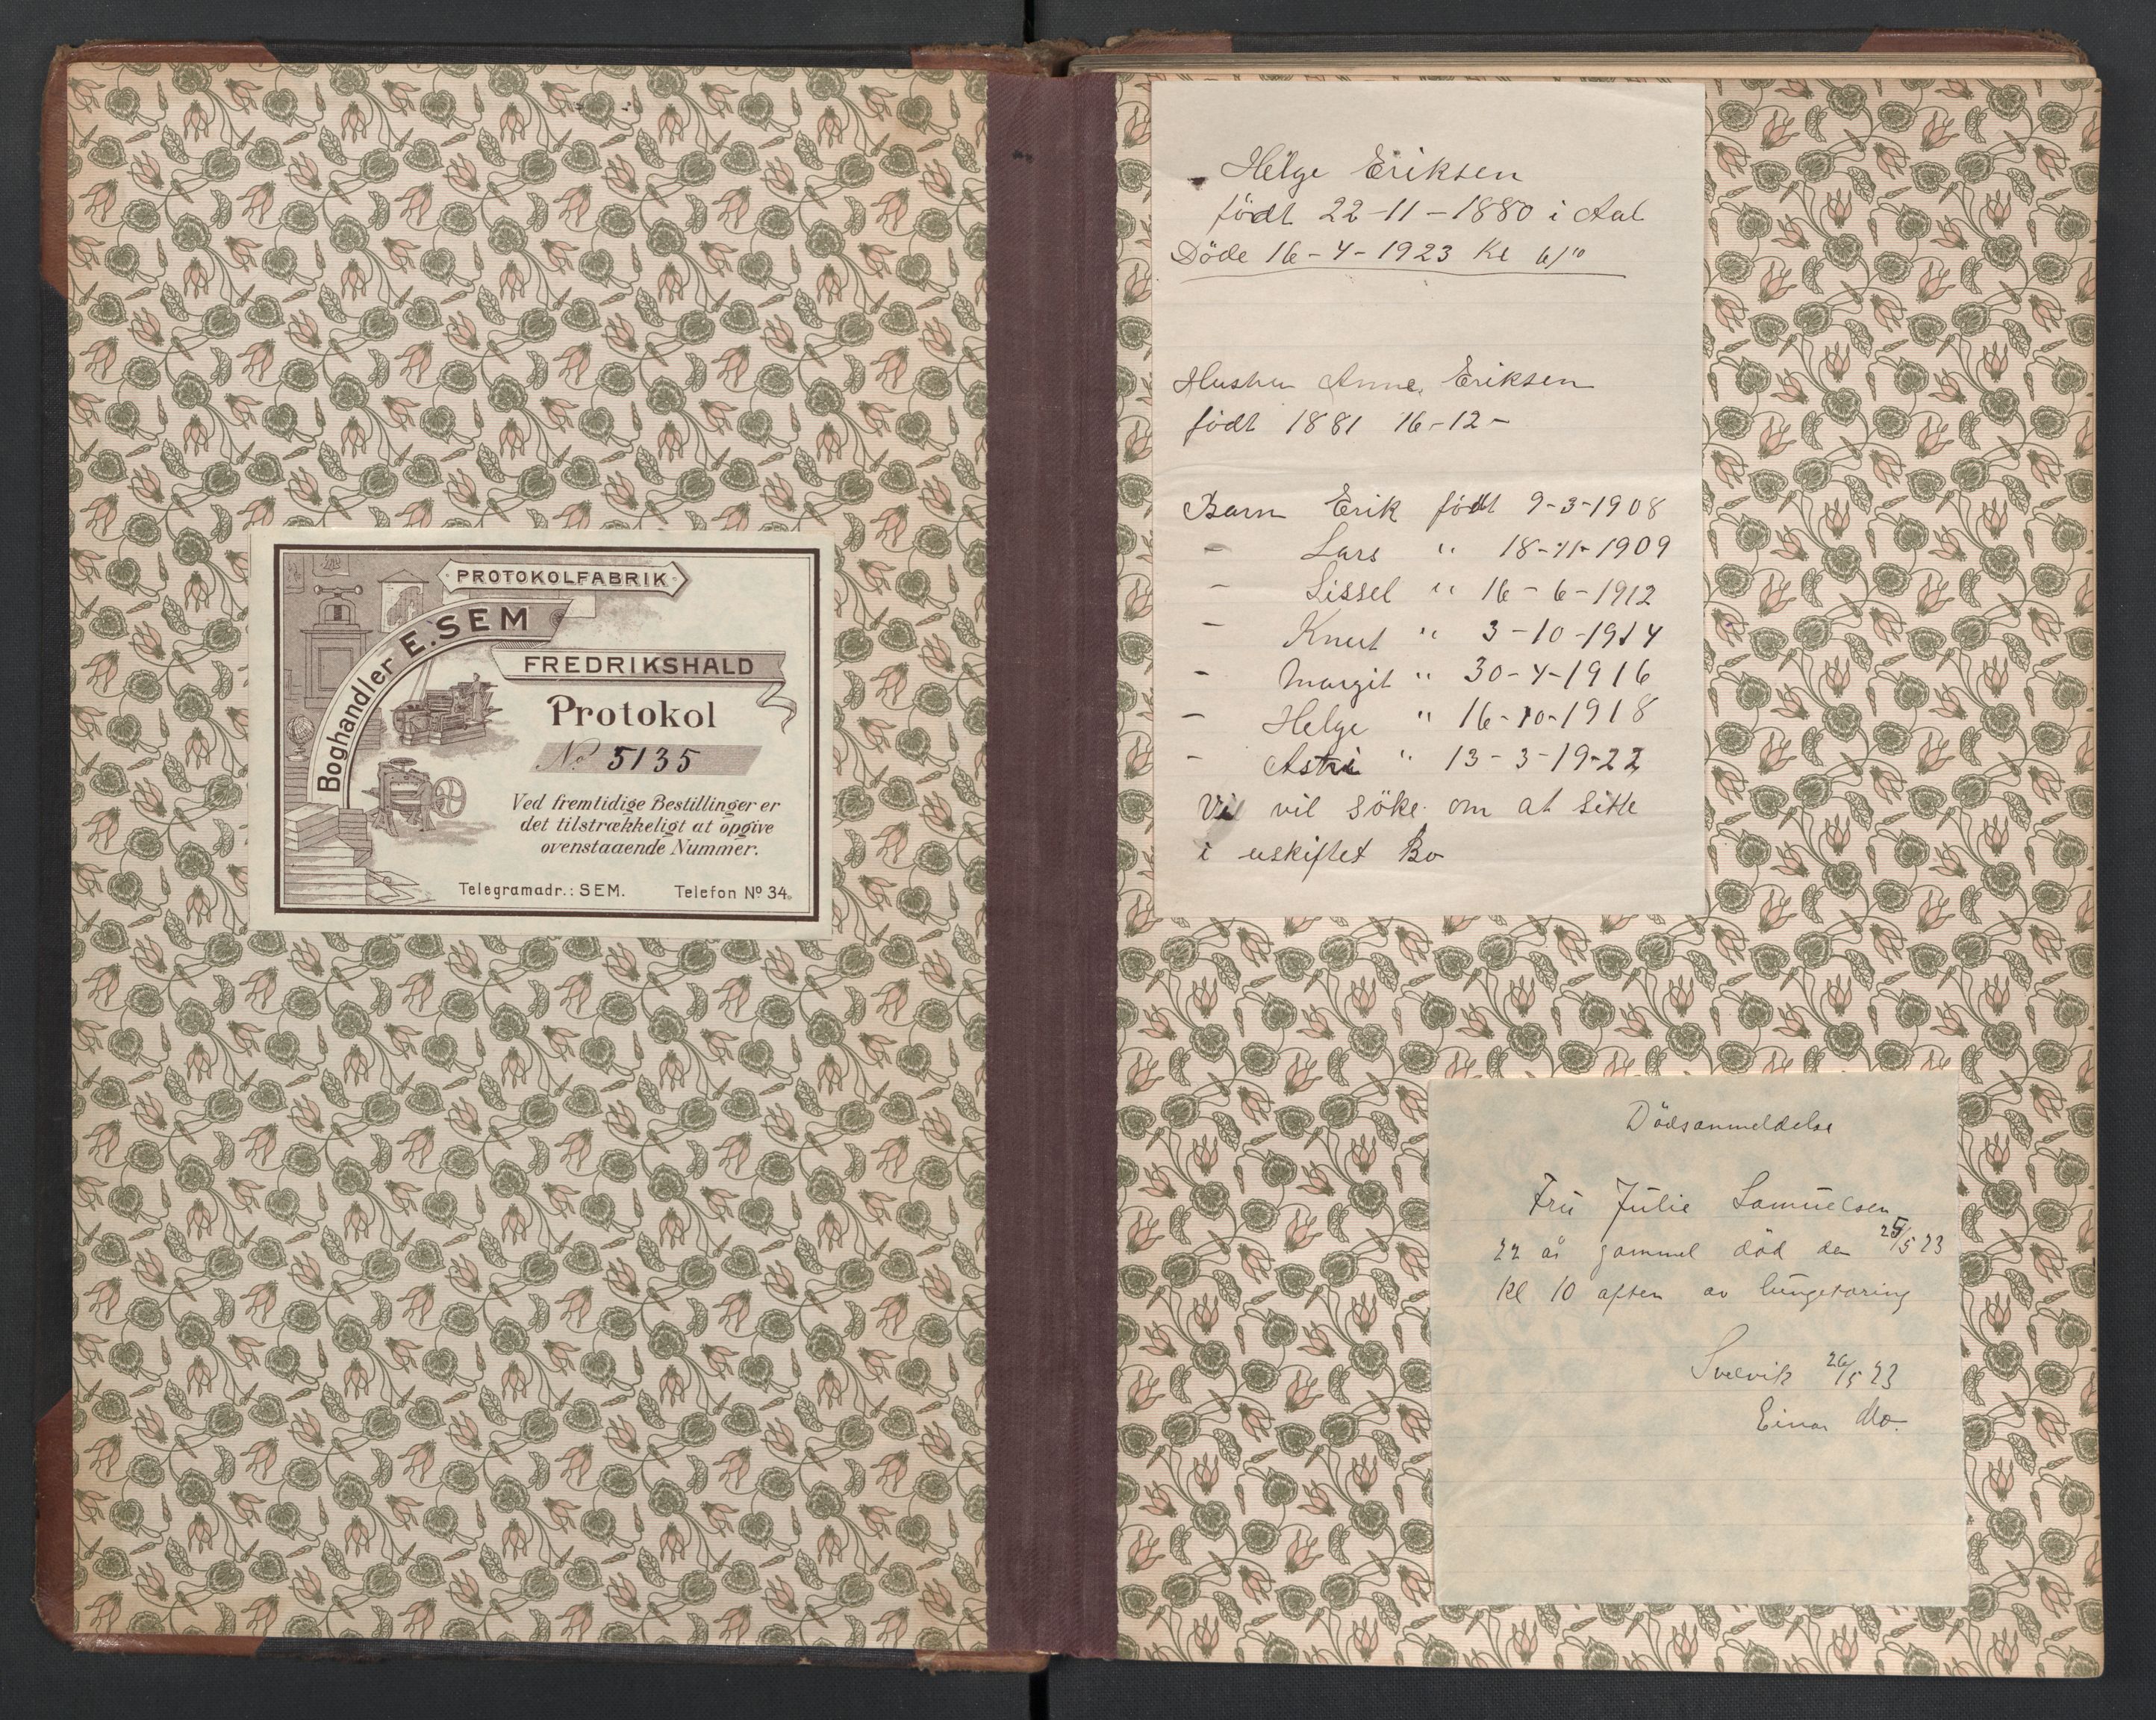 PROTOKOLFABRIK
Boghandler E. SEM
FREDRIKSHALD
Protokol
No 5135
Ved fremtidige Bestillinger er
det tilstrækkeligt at opgive
ovenstaaende Nummer.
Telegramadr.: SEM. Telefon No 34.
Helge Eriksen
födt 22-11-1880 i Aal
Döde 16-4-1923 Kl
Hustru Anne Eriksen
födt 1881 16-12-
Barn Erik födt 9-3-1908
- Lars " 18-11-1909
- Sissel " 16-6-1912
- Knut " 3-10-1914
- Margit " 30-4-1916
- Helge " 16-10-1918
- Astri " 13-3-19-22
Vi vil söke om at sitte
i uskiftet Bo
Dödsanmeldelse
Fru Julie Samuelsen
22 år gammel död den 25/5 23
Kl 10 aften av lungetæring
Svelvik 26/5 23
Einar Mo.